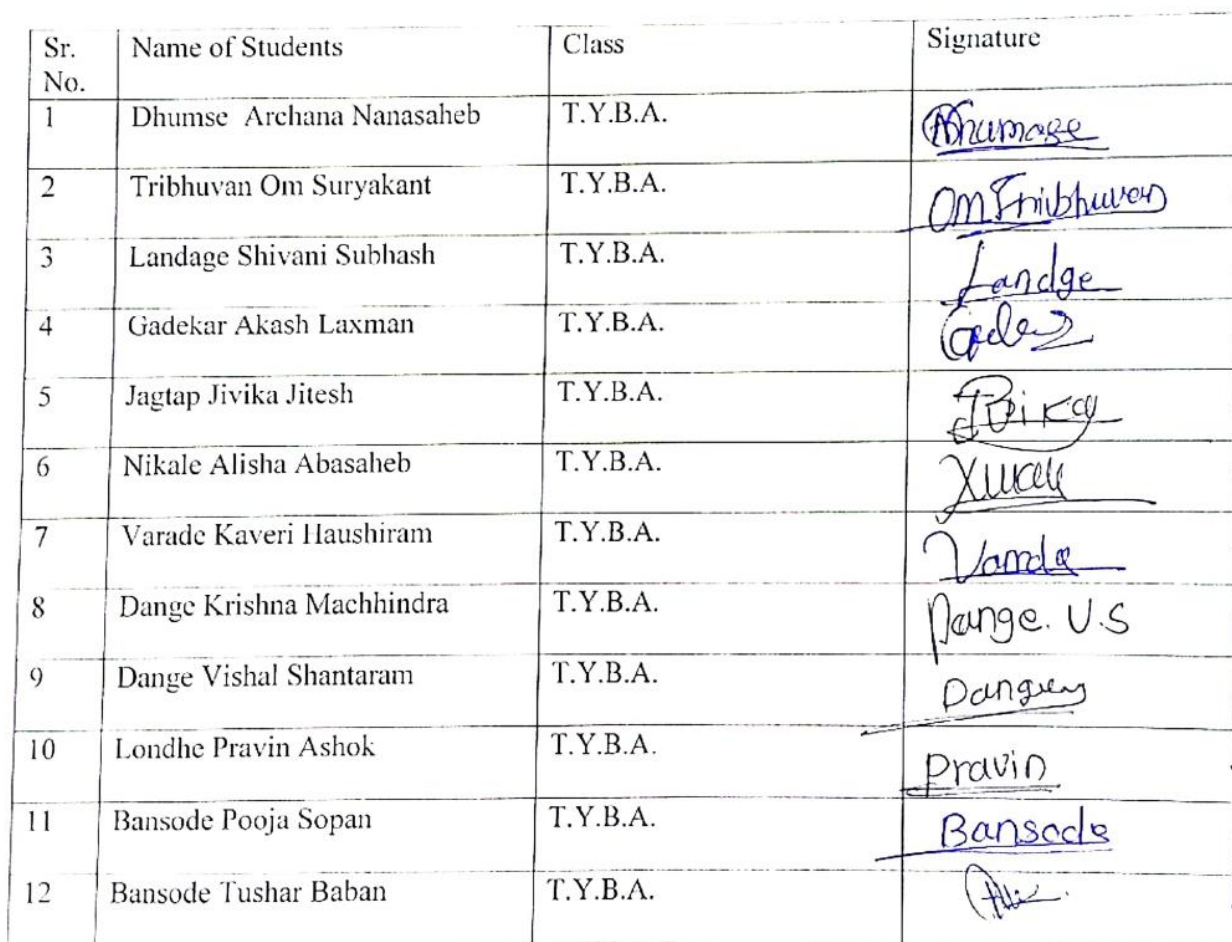 Sr. No. Name of Students Class Signature
1 Dhumse Archana Nanasaheb T.Y.B.A.
2 Tribhuvan Om Suryakant T.Y.B.A. Om Tribhuvan
3 Landage Shivani Subhash T.Y.B.A. Landge
4 Gadekar Akash Laxman T.Y.B.A.
5 Jagtap Jivika Jitesh T.Y.B.A.
6 Nikale Alisha Abasaheb T.Y.B.A.
7 Varade Kaveri Haushiram T.Y.B.A.
8 Dange Krishna Machhindra T.Y.B.A. Dange. V.S
9 Dange Vishal Shantaram T.Y.B.A.
10 Londhe Pravin Ashok T.Y.B.A. Pravin
11 Bansode Pooja Sopan T.Y.B.A. Bansode
12 Bansode Tushar Baban T.Y.B.A.